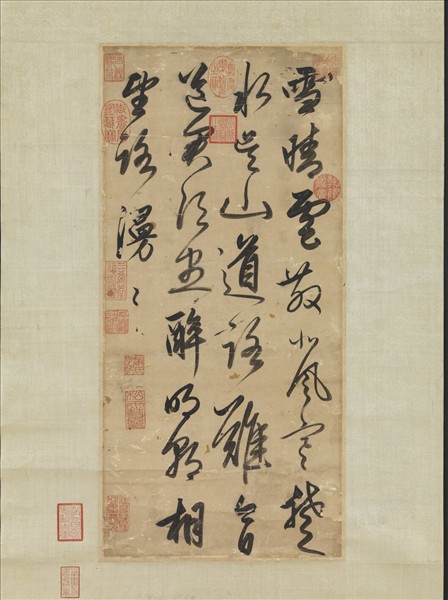 雪晴雲散北風寒楚
水吳山道路難今日
送君須盡醉明朝相
望路漫〻